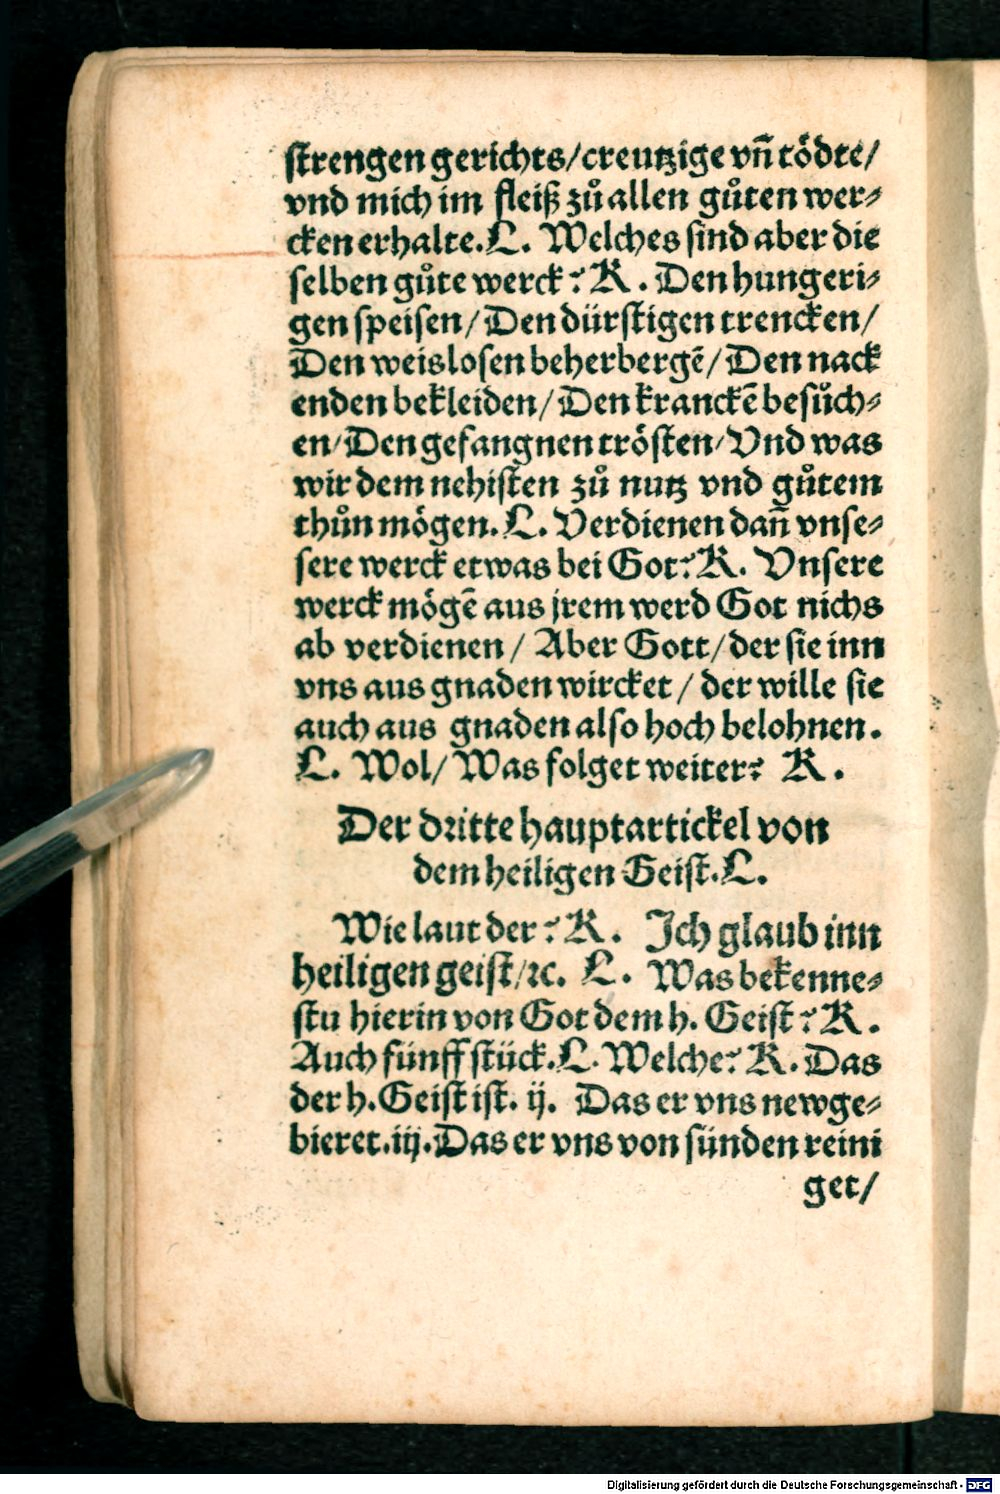 strengen gerichts/creutzige vñ tödte/
vnd mich im fleiß zů allen gůten wer⸗
cken erhalte. L. Welches sind aber die
selben gůte werck? K. Den hungeri⸗
gen speisen/ Den dürstigen trencken/
Den weislosen beherbergẽ/ Den nack
enden bekleiden/ Den kranckẽ besůch⸗
en/ Den gefangnen trösten/ Vnd was
wir dem nehisten zů nutz vnd gůtem
thůn mögen. L. Verdienen dañ vnse⸗
sere werck etwas bei Got? K. Vnsere
werck mögẽ aus jrem werd Got nichs
ab verdienen/ Aber Gott/ der sie inn
vns aus gnaden wircket/ der wille sie
auch aus gnaden also hoch belohnen.
L. Wol/ Was folget weiter? K.
Der dritte hauptartickel von
dem heiligen Geist. L.
Wie laut der? K. Ich glaub inn
heiligen geist/ꝛc. L. Was bekenne⸗
stu hierin von Got dem h. Geist? K.
Auch fünff stück. L. Welche? K. Das
der h. Geist ist. ij. Das er vns newge⸗
bieret. iij. Das er vns von sünden reini
get/
Digitalisierung gefördert durch die Deutsche Forschungsgemeinschaft - DFG